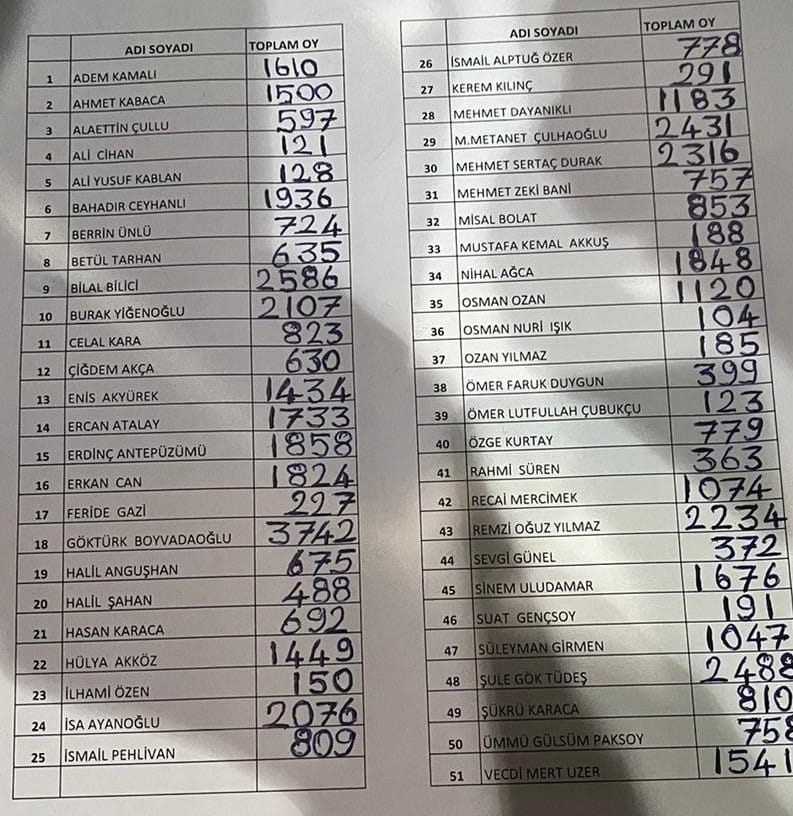 ADI SOYADI TOPLAM OY
1 ADEM KAMALI 1610
2 AHMET KABACA 1500
3 ALAETTİN ÇULLU 597
4 ALİ CİHAN 121
5 ALİ YUSUF KABLAN 128
6 BAHADIR CEYHANLI 1936
7 BERRİN ÜNLÜ 724
8 BETÜL TARHAN 635
9 BİLAL BİLİCİ 2586
10 BURAK YİĞENOĞLU 2107
11 CELAL KARA 823
12 ÇİĞDEM AKÇA 630
13 ENİS AKYÜREK 1434
14 ERCAN ATALAY 1733
15 ERDİNÇ ANTEPÜZÜMÜ 1858
16 ERKAN CAN 1824
17 FERİDE GAZİ 227
18 GÖKTÜRK BOYVADAOĞLU 3742
19 HALİL ANGUŞHAN 675
20 HALİL ŞAHAN 488
21 HASAN KARACA 692
22 HÜLYA AKKÖZ 1449
23 İLHAMİ ÖZEN 150
24 İSA AYANOĞLU 2076
25 İSMAİL PEHLİVAN 809
ADI SOYADI TOPLAM OY
26 İSMAİL ALPTUĞ ÖZER 778
27 KEREM KILINÇ 291
28 MEHMET DAYANIKLI 1183
29 M.METANET ÇULHAOĞLU 2431
30 MEHMET SERTAÇ DURAK 2316
31 MEHMET ZEKİ BANİ 757
32 MİSAL BOLAT 853
33 MUSTAFA KEMAL AKKUŞ 188
34 NİHAL AĞCA 1848
35 OSMAN OZAN 1120
36 OSMAN NURİ IŞIK 104
37 OZAN YILMAZ 185
38 ÖMER FARUK DUYGUN 399
39 ÖMER LUTFULLAH ÇUBUKÇU 123
40 ÖZGE KURTAY 779
41 RAHMİ SÜREN 363
42 RECAİ MERCİMEK 1074
43 REMZİ OĞUZ YILMAZ 2234
44 SEVGİ GÜNEL 372
45 SİNEM ULUDAMAR 1676
46 SUAT GENÇSOY 191
47 SÜLEYMAN GİRMEN 1047
48 ŞULE GÖK TÜDEŞ 2488
49 ŞÜKRÜ KARACA 810
50 ÜMMÜ GÜLSÜM PAKSOY 758
51 VECDİ MERT UZER 1541